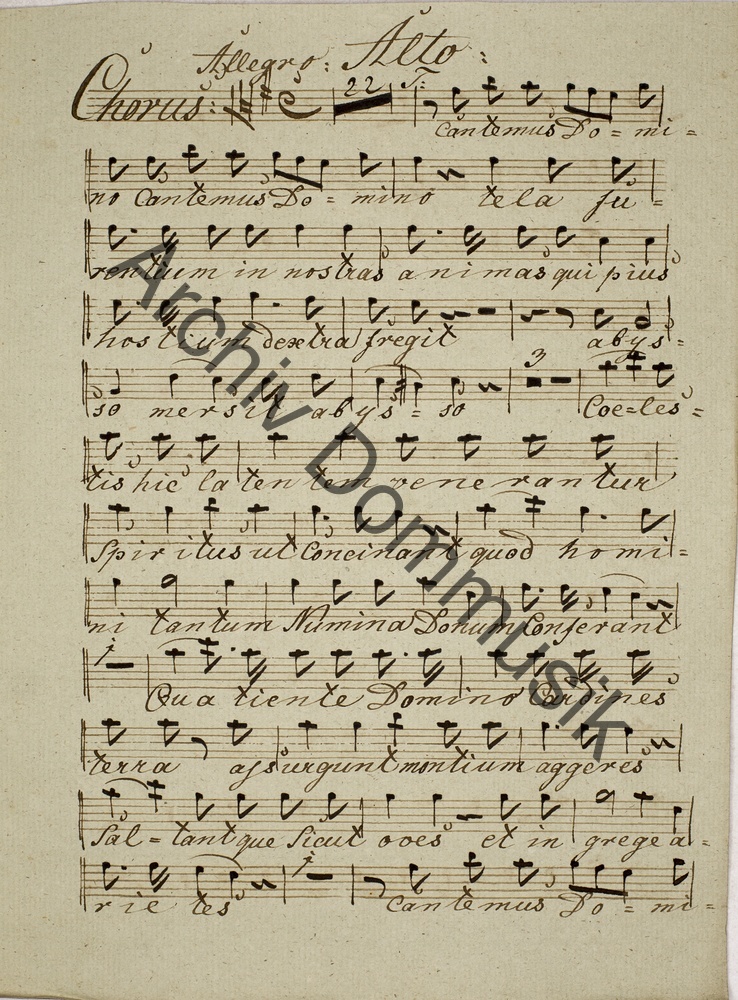 Allegro: Alto:
Chorus: 22 Cantemus Do = mi =
no Cantemus Do = mino tela fu =
rentium in nostras animas qui pius
hostium dextra fregit abys =
3
so mersit abys = so Coe = les =
tis hic latentem venerantur
Spiritus ut Concinant quod homi =
ni tantum Numina Donum Conferant
1
Quatiente Domino Cardines
terra assurgunt montium aggeres
Sal = tantque Sicut oves et in grege a =
1
rietes Cantemus Do = mi =
Archiv Dommusik